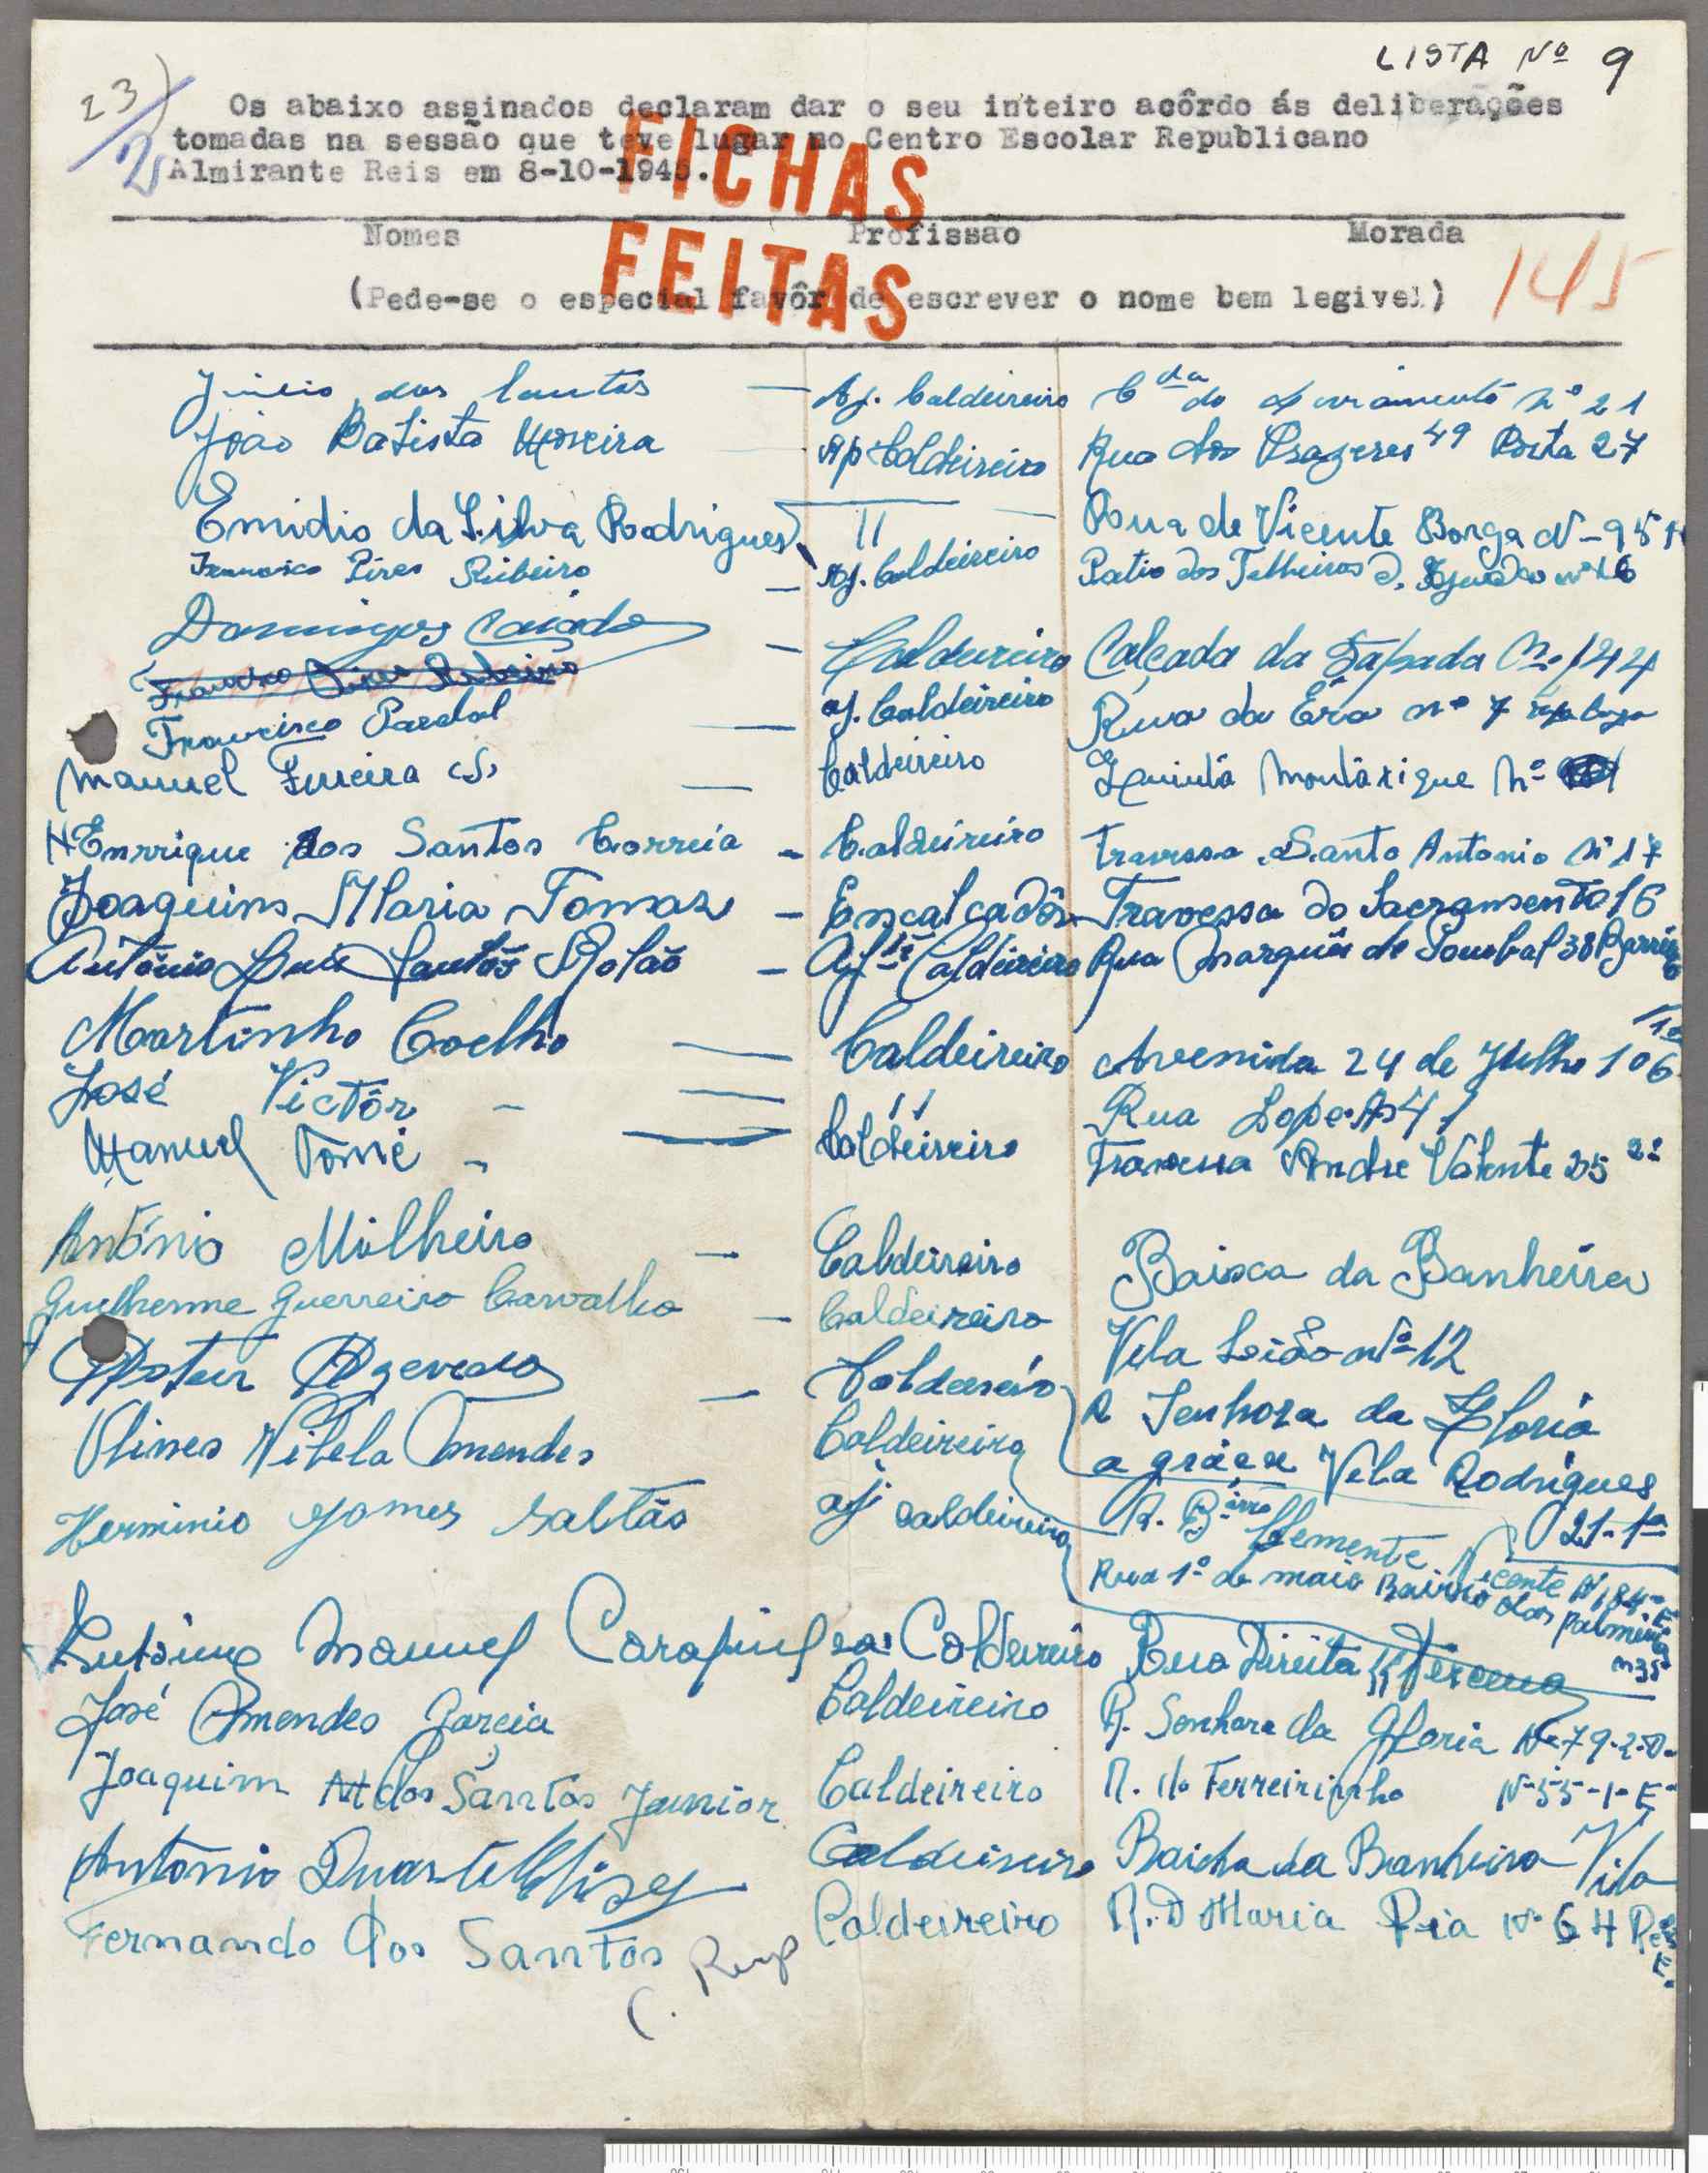 LISTA Nº 9
23)
2
Os abaixo assinados declaram dar o seu inteiro acôrdo ás deliberações
tomadas na sessão que teve lugar no Centro Escolar Republicano
Almirante Reis em 8-10-1945.
FICHAS
FEITAS
Nomes Profissão Morada
145
(Pede-se o especial favôr de escrever o nome bem legivel)
dos Santos — Aj. Caldeireiro Cda do nº 21
João Batista Moreira Ap Caldeireiro Rua dos Prazeres 49 Porta 27
Emidio da Silva Rodrigues " Rua de Vicente Borga N-95
Francisco Pires Ribeiro — Aj. Caldeireiro Patio dos Telheiros
Domingos Caiado — Caldeireiro Calçada da Tapada
Francisco Pires Ribeiro
Francisco Pardal — aj. Caldeireiro Rua da Era nº 7
Manuel Ferreira — Caldeireiro Montáxique Nº
HEnrrique dos Santos Correia - Caldeireiro Travessa Santo Antonio Nº 17
Joaquim Maria Tomaz - Enscalcadôr Travessa do Sacramento 16
António Luis Santos Rolão - Ajte Caldeireiro Rua Marquês de Pombal 38 Barreiro
Martinho Coelho — Caldeireiro Avenida 24 de Julho 106
José Victôr - — " Rua Lopes 41
Manuel Tomé - — Caldeireiro Travessa Andre Valente 25 2º
António Milheiro — Caldeireiro Baixa da Banheira
Guilherme Guerreiro Carvalho — Caldeireiro Vila Leião nº 12
Azevedo — Caldeireiro R Senhora da Gloria
a graça Vila Rodrigues
21-1º
Ulisses Vilela Mendes Caldeireiro R. B. Clemente Vicente
Herminio Gomes Saltão aj Caldeireiro Rua 1º de maio Bairro das Palmeiras
nº 35
António Manuel Carapinha Caldeireiro Rua Direita
José Mendes Garcia Caldeireiro R. Senhora da Gloria Nº 79-2-D.
Joaquim M dos Santos Junior Caldeireiro R. do Ferreirinho Nº 55-1-E
António Duarte Caldeireiro Baicha da Banheira Vila
Fernando dos Santos Caldeireiro R. D Maria Pia Nº 64